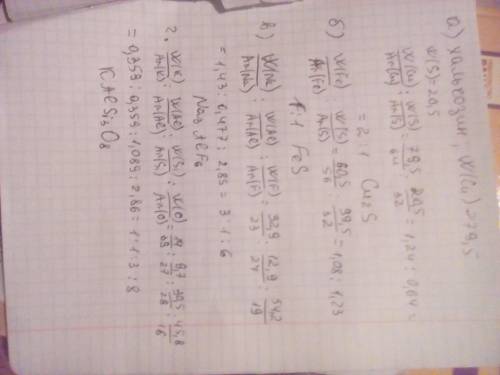 а) халькозин; W(Cu)=79,5
W(S)=20,5
W(Cu)/Ar(Cu) : W(S)/Ar(S) = 79,5/64 : 20,5/32 = 1,24 : 0,64 =
= 2:1 Cu2S
б) W(Fe)/Ar(Fe) : W(S)/Ar(S) = 60,5/56 : 39,5/32 = 1,08 : 1,23
1:1 FeS
в) W(Na)/Ar(Na) : W(Al)/Ar(Al) : W(F)/Ar(F) = 32,9/23 : 12,9/27 : 54,2/19
= 1,43 : 0,477 : 2,85 = 3:1:6
Na3AlF6
г. W(K)/Ar(K) : W(Al)/Ar(Al) : W(Si)/Ar(Si) : W(O)/Ar(O) = 14/39 : 9,7/27 : 30,5/28 : 45,8/16
= 0,359 : 0,359 : 1,089 : 2,86 = 1:1:3:8
KAlSi3O8